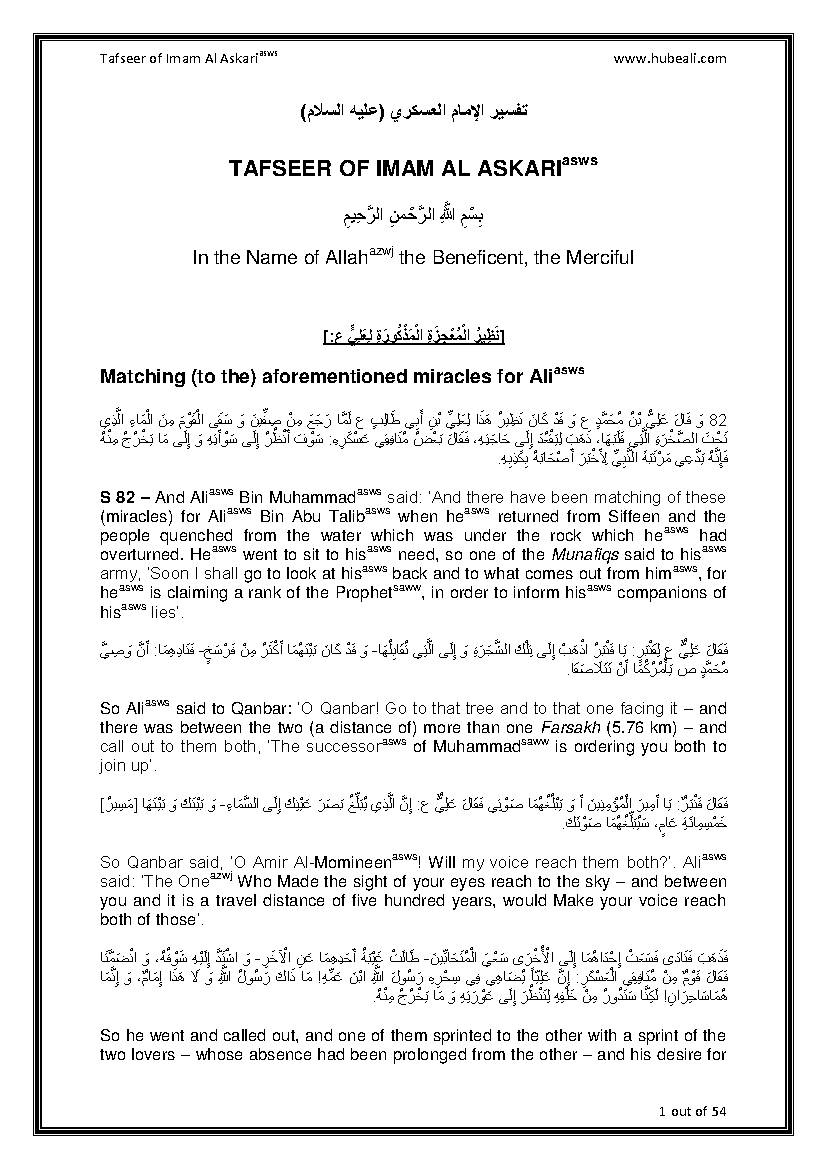 Tafseer of Imam Al Askari^asws www.hubeali.com
تفسير الإمام العسكري (عليه السلام)
TAFSEER OF IMAM AL ASKARI^asws
بِسْمِ اللَّهِ الرَّحْمنِ الرَّحِيمِ
In the Name of Allah^azwj the Beneficent, the Merciful
[نَظِيرُ الْمُعْجِزَةِ الْمَذْكُورَةِ لِعَلِيٍّ ع:]
Matching (to the) aforementioned miracles for Ali^asws
82 وَ قَالَ عَلِيُّ بْنُ مُحَمَّدٍ ع وَ قَدْ كَانَ نَظِيرُ هَذَا لِعَلِيِّ بْنِ أَبِي طَالِبٍ ع لَمَّا رَجَعَ مِنْ صِفِّينَ وَ سَقَى الْقَوْمَ مِنَ الْمَاءِ الَّذِي
تَحْتَ الصَّخْرَةِ الَّتِي قَلَبَهَا، ذَهَبَ لِيَقْعُدَ إِلَى حَاجَتِهِ، فَقَالَ بَعْضُ مُنَافِقِي عَسْكَرِهِ: سَوْفَ أَنْظُرُ إِلَى سَوْأَتِهِ وَ إِلَى مَا يَخْرُجُ مِنْهُ
فَإِنَّهُ يَدَّعِي مَرْتَبَةَ النَّبِيِّ لِأُخْبِرَ أَصْحَابَهُ بِكَذِبِهِ.
S 82 – And Ali^asws Bin Muhammad^asws said: ‘And there have been matching of these
(miracles) for Ali^asws Bin Abu Talib^asws when he^asws returned from Siffeen and the
people quenched from the water which was under the rock which he^asws had
overturned. He^asws went to sit to his^asws need, so one of the Munafiqs said to his^asws
army, ‘Soon I shall go to look at his^asws back and to what comes out from him^asws, for
he^asws is claiming a rank of the Prophet^saww, in order to inform his^asws companions of
his^asws lies’.
فَقَالَ عَلِيٌّ ع لِقَنْبَرٍ: يَا قَنْبَرُ اذْهَبْ إِلَى تِلْكَ الشَّجَرَةِ وَ إِلَى الَّتِي تُقَابِلُهَا- وَ قَدْ كَانَ بَيْنَهُمَا أَكْثَرُ مِنْ فَرْسَخٍ- فَنَادِهِمَا: أَنَّ وَصِيَّ
مُحَمَّدٍ ص يَأْمُرُكُمَا أَنْ تَتَلَاصَقَا.
So Ali^asws said to Qanbar: ‘O Qanbar! Go to that tree and to that one facing it – and
there was between the two (a distance of) more than one Farsakh (5.76 km) – and
call out to them both, ‘The successor^asws of Muhammad^saww is ordering you both to
join up’.
فَقَالَ قَنْبَرٌ: يَا أَمِيرَ الْمُؤْمِنِينَ أَ وَ يَبْلُغُهُمَا صَوْتِي فَقَالَ عَلِيٌّ ع: إِنَّ الَّذِي يُبَلِّغُ بَصَرَ عَيْنِكَ إِلَى السَّمَاءِ- وَ بَيْنَكَ وَ بَيْنَهَا [مَسِيرُ]
خَمْسِمِائَةِ عَامٍ، سَيُبَلِّغُهُمَا صَوْتَكَ.
So Qanbar said, ‘O Amir Al-Momineen^asws! Will my voice reach them both?’. Ali^asws
said: ‘The One^azwj Who Made the sight of your eyes reach to the sky – and between
you and it is a travel distance of five hundred years, would Make your voice reach
both of those’.
فَذَهَبَ فَنَادَى فَسَعَتْ إِحْدَاهُمَا إِلَى الْأُخْرَى سَعْيَ الْمُتَحَابَّيْنِ- طَالَتْ غَيْبَةُ أَحَدِهِمَا عَنِ الْآخَرِ- وَ اشْتَدَّ إِلَيْهِ شَوْقُهُ، وَ انْضَمَّتَا
فَقَالَ قَوْمٌ مِنْ مُنَافِقِي الْعَسْكَرِ: إِنَّ عَلِيّاً يُضَاهِي فِي سِحْرِهِ رَسُولَ اللَّهِ ابْنَ عَمِّهِ! مَا ذَاكَ رَسُولُ اللَّهِ وَ لَا هَذَا إِمَامٌ، وَ إِنَّمَا
هُمَا سَاحِرَانِ! لَكِنَّا سَنَدُورُ مِنْ خَلْفِهِ لِنَنْظُرَ إِلَى عَوْرَتِهِ وَ مَا يَخْرُجُ مِنْهُ.
So he went and called out, and one of them sprinted to the other with a sprint of the
two lovers – whose absence had been prolonged from the other – and his desire for
1 out of 54